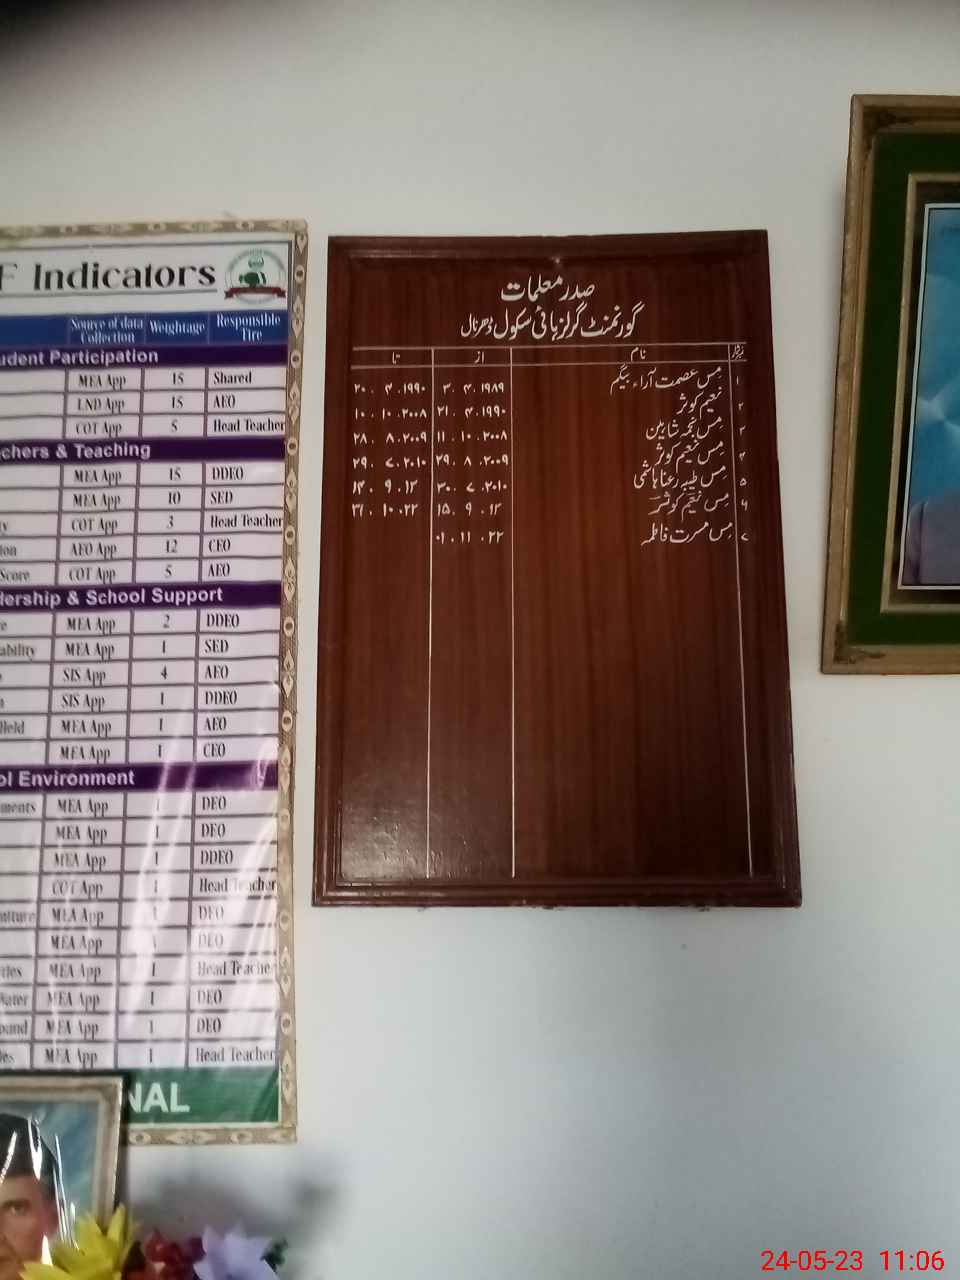 F Indicators
Source of data Collection Weightage Responsible Tire
udent Participation
MEA App 15 Shared
LND App 15 AEO
COT App 5 Head Teacher
chers & Teaching
MEA App 15 DDEO
MEA App 10 SED
ty COT App 3 Head Teacher
ion AEO App 12 CEO
Score COT App 5 AEO
dership & School Support
e MEA App 2 DDEO
ability MEA App 1 SED
SIS App 4 AEO
SIS App 1 DDEO
Held MEA App 1 AEO
MEA App 1 CEO
ol Environment
ments MEA App 1 DEO
MEA App 1 DEO
MEA App 1 DDEO
COT App 1 Head Teacher
niture MEA App 1 DEO
MEA App 1 DEO
MEA App 1 Head Teacher
Water MEA App 1 DEO
ound MEA App 1 DEO
MEA App 1 Head Teacher
NAL
صدر معلمات
گورنمنٹ گرلز ہائی سکول ڈھرنال
نمبر شمار نام از تا
۱ مس عصمت آراء بیگم ۳.۴.۱۹۸۹ ۲۰.۴.۱۹۹۰
۲ نعیم کوثر ۲۱.۴.۱۹۹۰ ۱۰.۱۰.۲۰۰۸
۳ مس نجمہ شاہین ۱۱.۱۰.۲۰۰۸ ۲۸.۸.۲۰۰۹
۴ مس نعیم کوثر ۲۹.۸.۲۰۰۹ ۲۹.۷.۲۰۱۰
۵ مس طیبہ رعنا ہاشمی ۳۰.۷.۲۰۱۰ ۱۴.۹.۱۲
۶ مس نعیم کوثر ۱۵.۹.۱۲ ۳۱.۱۰.۲۲
۷ مس مسرت فاطمہ ۰۱.۱۱.۲۲
24-05-23 11:06